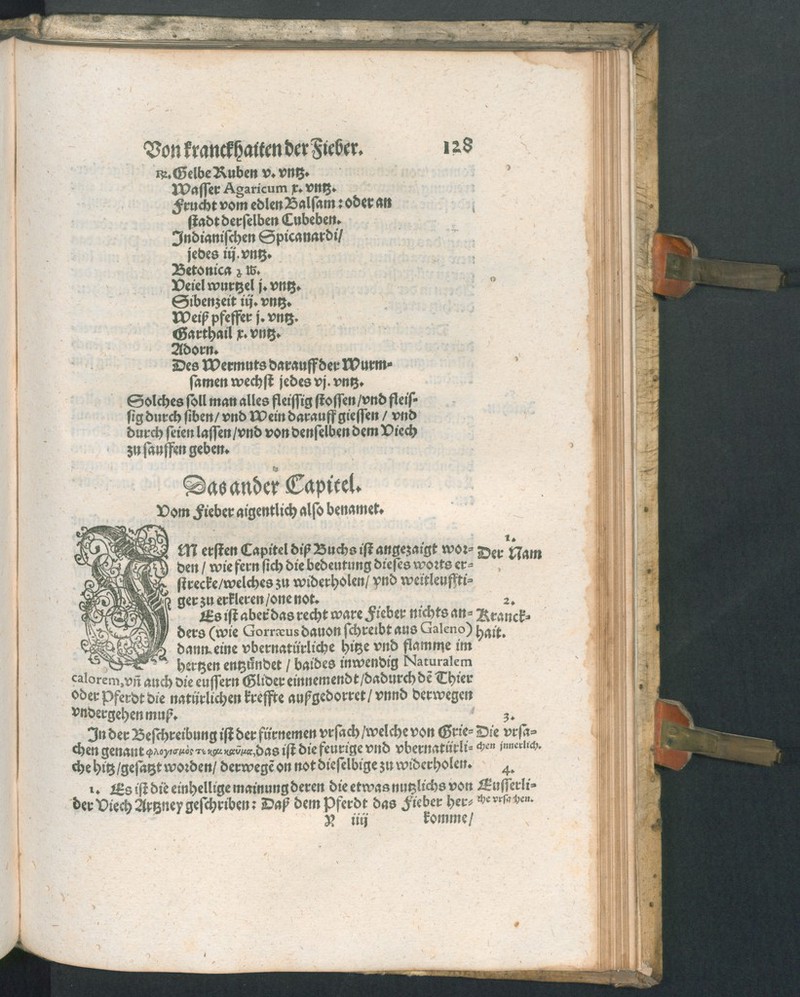 Von kranckhaiten der Fieber. 128
℞. Gelbe Ruben v. vntz.
Wasser Agaricum x. vntz.
Frucht vom edlen Balsam: oder an
stadt derselben Cubeben.
Indianischen Spicanardi/
jedes iij. vntz.
Betonica ʒ ℔.
Veiel wurtzel j. vntz.
Sibenzeit iij. vntz.
Weiß pfeffer j. vntz.
Garthail x. vntz.
Adorn.
Des Wermuts darauff der Wurm-
samen wechst jedes vj. vntz.
Solches soll man alles fleissig stossen/vnd fleis-
sig durch siben/ vnd Wein darauff giessen / vnd
durch seien lassen/vnd von denselben dem Viech
zu sauffen geben.
Das ander Capitel.
Vom Fieber aigentlich also benamet.
IM ersten Capitel diß Buchs ist angezaigt wor-
den / wie fern sich die bedeutung dieses worts er-
strecke/welches zu widerholen/ vnd weitleuffti-
ger zu erkleren/one not.
1.
Der Nam
Es ist aber das recht ware Fieber nichts an-
ders (wie Gorræus dauon schreibt aus Galeno)
dann eine vbernatürliche hitze vnd flamme im
hertzen entzündet / baides inwendig Naturalem
calorem,vñ auch die eussern Glider einnemendt/dadurch dẽ Thier
oder Pferdt die natürlichen kreffte außgedorret/ vnnd derwegen
vndergehen muß.
2.
Kranck-
hait.
In der Beschreibung ist der fürnemen vrsach/welche von Grie-
chen genant φλογισμὸς das ist die feurige vnd vbernatürli-
che hitz/gesatzt worden/ derwegẽ on not dieselbige zu widerholen.
3.
Die vrsa-
chen innerlich.
1. Es ist die einhellige mainung deren die etwas nutzlichs von
der Viech Artzney geschriben: Daß dem Pferdt das Fieber her-
4.
Eusserli-
che vrsachen.
Y iiij komme/